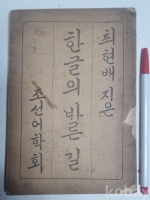 최현배 지은
한글의 바른 길
조선어학회
kobay